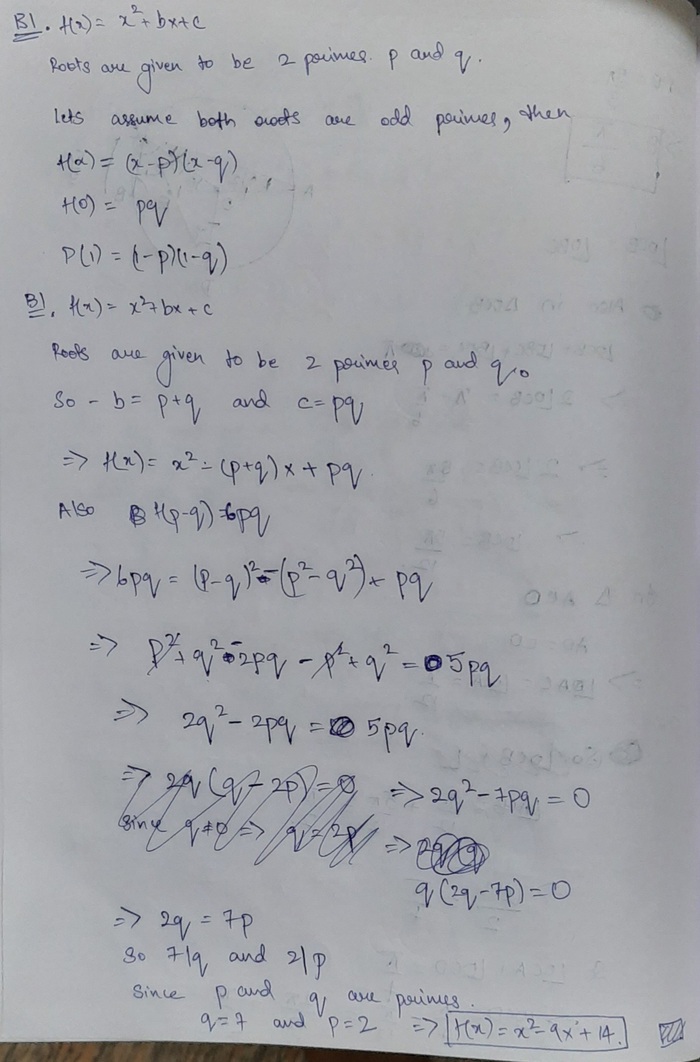 B1. f(x) = x² + bx + c
Roots are given to be 2 primes p and q.
Lets assume both roots are odd primes, then
f(x) = (x-p)(x-q)
f(0) = pq
P(1) = (1-p)(1-q)
B1. f(x) = x² + bx + c
Roots are given to be 2 primes p and q.
So - b = p+q and c = pq
⇒ f(x) = x² - (p+q)x + pq
Also f(p-q) = 6pq
⇒ 6pq = (p-q)² - (p² - q²) + pq
⇒ p² + q² - 2pq - p² + q² = 5pq
⇒ 2q² - 2pq = 5pq.
⇒ 2q(q - 2p) = 0 ⇒ 2q² - 7pq = 0
Since q ≠ 0 ⇒ q = 2p ⇒
q(2q - 7p) = 0
⇒ 2q = 7p
So 7|q and 2|p
Since p and q are primes.
q = 7 and p = 2 ⇒ f(x) = x² - 9x + 14.